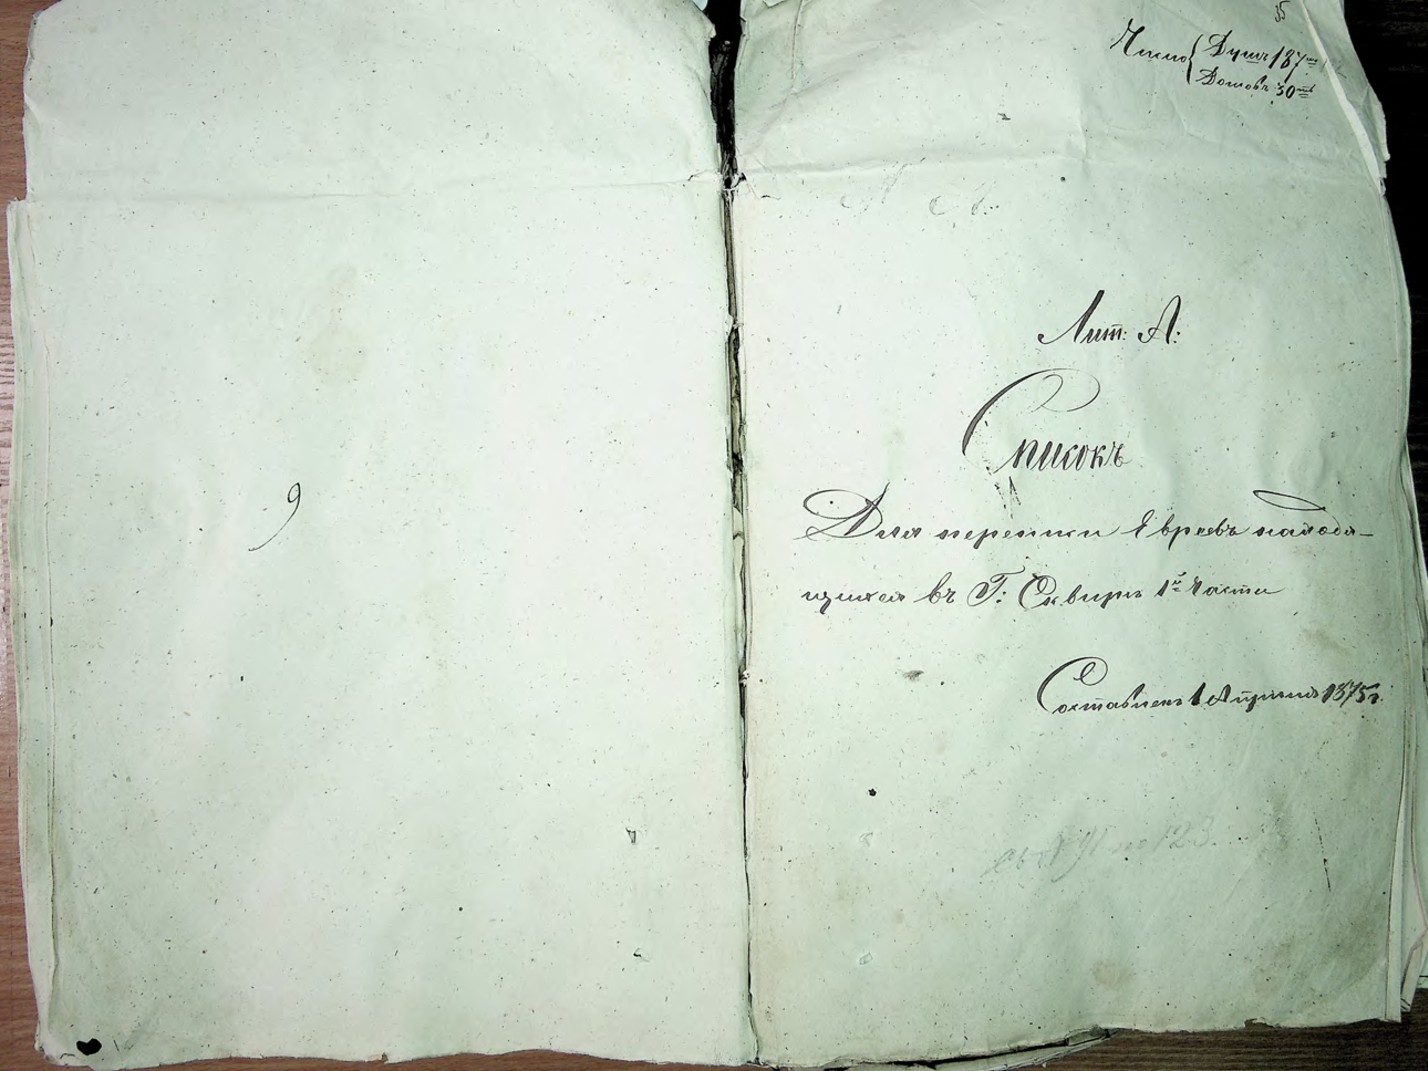 9
35
Число { Душъ 187
Домовъ 30
Лит: А:
Списокъ
Для переписи Евреевъ находя-
щихся въ Г: Сквирѣ 1й Части
Составленъ 1 Апрѣля 1875 г.
123